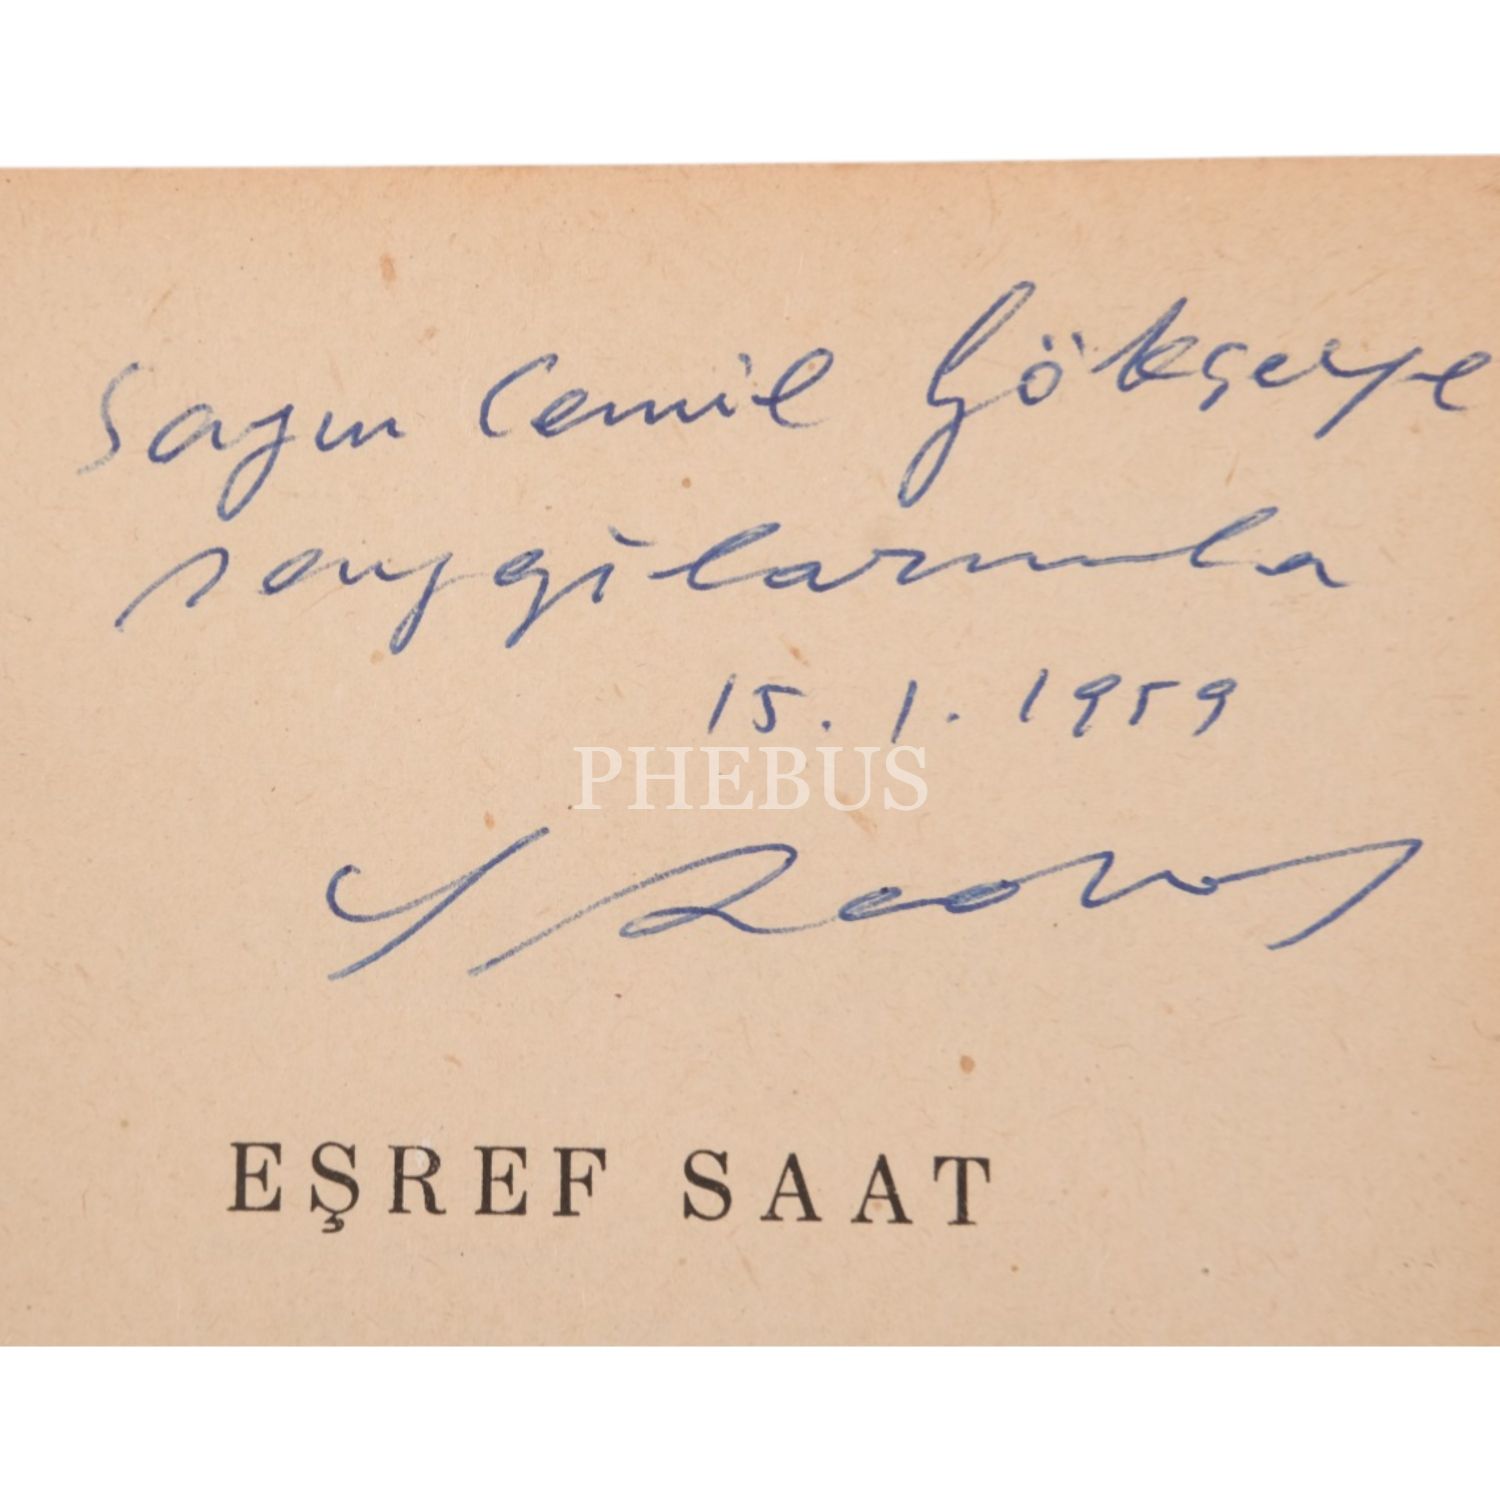 Sayın Cemil Gökçeye
saygılarımla
15.1.1959
PHEBUS
EŞREF SAAT